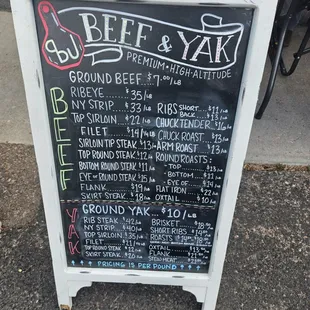 BEEF & YAK
PREMIUM • HIGH-ALTITUDE
GROUND BEEF $7.00/LB
BEEF
RIBEYE $35/LB
NY STRIP $33/LB
TOP SIRLOIN $22/LB
FILET
SIRLOIN TIP STEAK $13
TOP ROUND STEAK $12
BOTTOM ROUND STEAK
EYE OF ROUND STEAK $15
FLANK $19
SKIRT STEAK $18
RIBS SHORT
BACK
CHUCK TENDER
CHUCK ROAST
ARM ROAST $13
ROUND ROASTS:
TOP
BOTTOM
EYE OF
FLAT IRON
OXTAIL
YAK
GROUND YAK $10/LB
RIB STEAK $42
NY STRIP $40
TOP SIRLOIN
FILET
TOP ROUND STEAK
SKIRT STEAK
BRISKET
SHORT RIBS
ROASTS
OXTAIL
FLANK
STEW MEAT
PRICING IS PER POUND